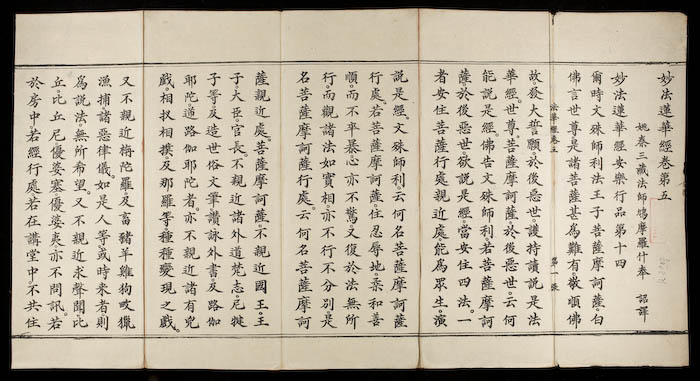 妙法蓮華經卷第五
姚秦三藏法師鳩摩羅什奉 詔譯
妙法蓮華經安樂行品第十四
爾時文殊師利法王子菩薩摩訶薩。白
佛言世尊是諸菩薩甚為難有敬順佛
法華經卷五 第一張
故發大誓願於後惡世。護持讀說是法
華經。世尊。菩薩摩訶薩。於後惡世。云何
能說是經。佛告文殊師利若菩薩摩訶
薩於後惡世。欲說是經。當安住四法。一
者安住菩薩行處親近處能為眾生。演
說是經。文殊師利云何名菩薩摩訶薩
行處。若菩薩摩訶薩。住忍辱地。柔和善
順。而不卒暴心亦不驚。又復於法無所
行。而觀諸法如實相。亦不行不分別。是
名菩薩摩訶薩行處。云何名菩薩摩訶
薩親近處。菩薩摩訶薩。不親近國王。王
子。大臣。官長。不親近諸外道梵志。尼揵
子等及造世俗文筆讚詠外書及路伽
耶陀逆路伽耶陀者亦不親近諸有兇
戲。相扠相撲。及那羅等種種變現之戲。
又不親近旃陀羅及畜豬羊雞狗畋獵
漁捕。諸惡律儀如是人等或時來者則
為說法。無所希望。又不親近求聲聞比
丘。比丘尼優婆塞優婆夷亦不問訊。若
於房中若經行處若在講堂中不共住